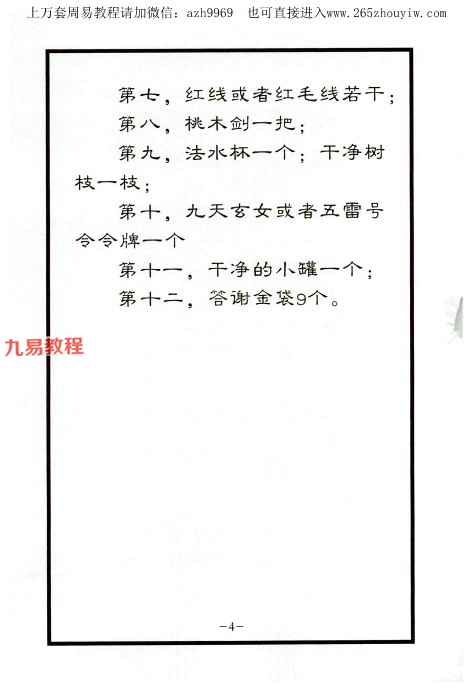 上万套周易教程请加微信：azh9969 也可直接进入www.265zhouyiw.com
第七，红线或者红毛线若干；
第八，桃木剑一把；
第九，法水杯一个；干净树
枝一枝；
第十，九天玄女或者五雷号
令令牌一个
第十一，干净的小罐一个；
第十二，答谢金袋9个。
九易教程
-4-